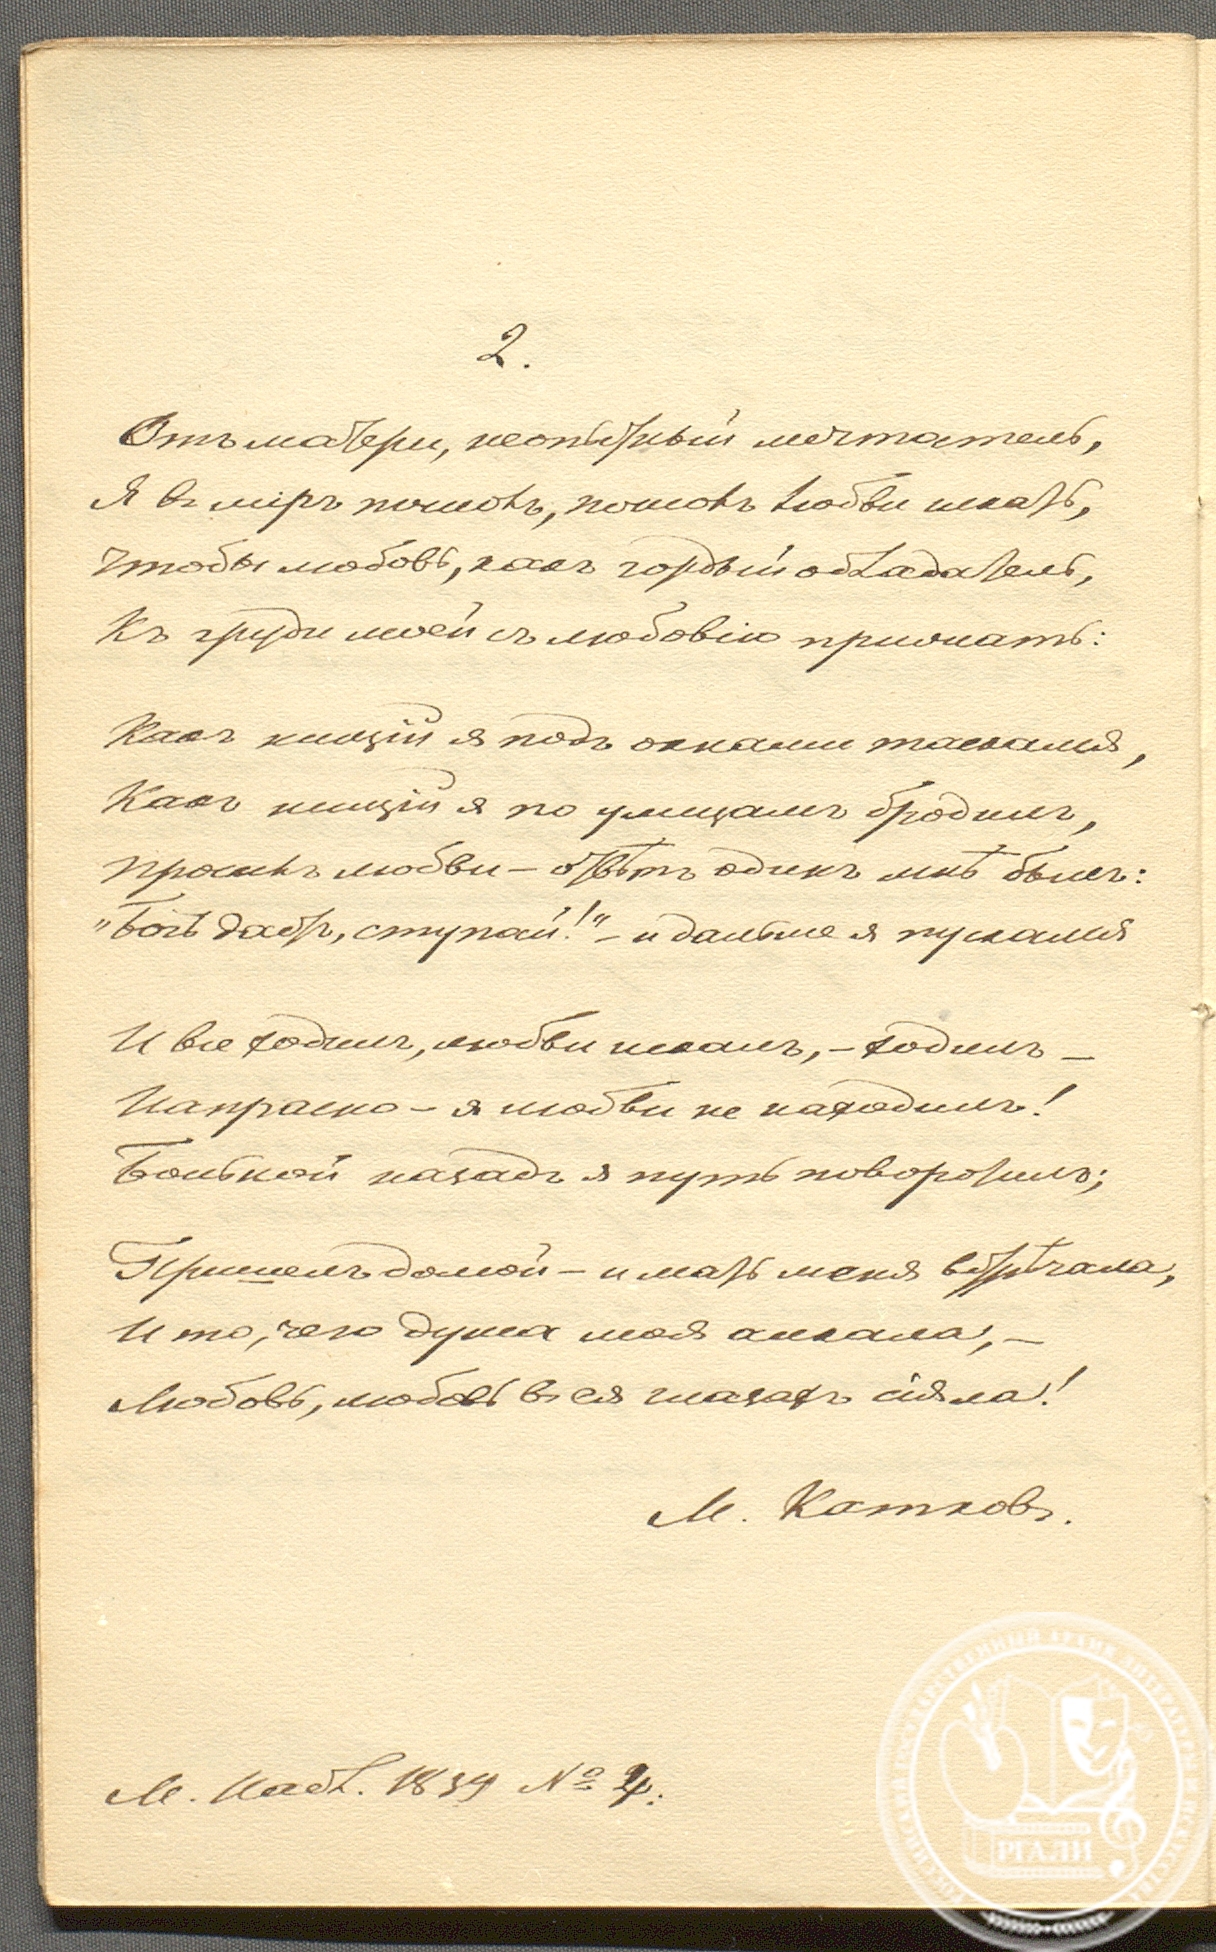 2.
Отъ матери, неопытный мечтатель,
Я въ міръ пошолъ, пошолъ любви искать,
Чтобы любовь, какъ гордый обладатель,
Къ груди моей съ любовію прижать:
Какъ нищій я подъ окнами таскался,
Какъ нищій я по улицамъ бродилъ,
Просилъ любви – отвѣтъ одинъ мнѣ былъ:
"Богъ дастъ, ступай!" – и дальше я пускался
И все ходилъ, любви искалъ, – ходилъ –
Напрасно – я любви не находилъ!
Больной назадъ я путь поворотилъ;
Пришелъ домой – и мать меня встрѣчала,
И то, чего душа моя алкала, –
Любовь, любовь въ ея глазахъ сіяла!
М. Катковъ.
М. Набл. 1839 № 4.
РОССИЙСКИЙ ГОСУДАРСТВЕННЫЙ АРХИВ ЛИТЕРАТУРЫ И ИСКУССТВА
РГАЛИ